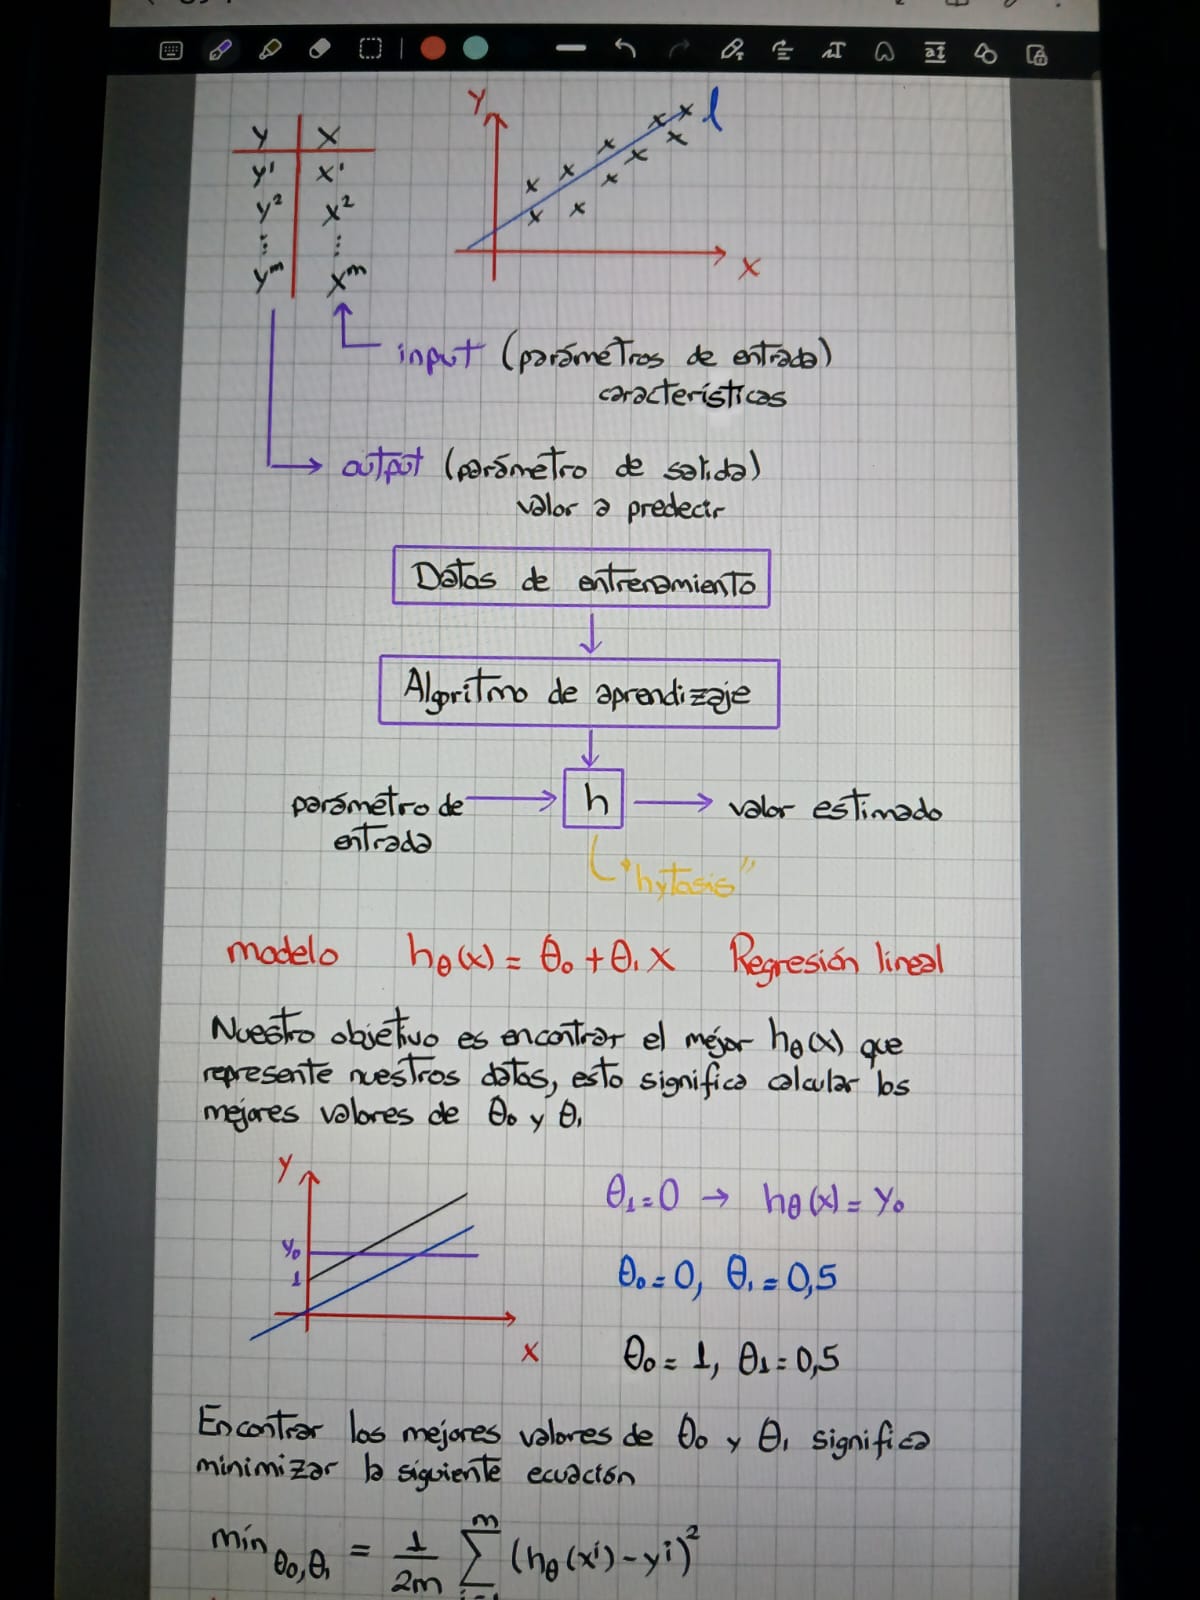 Y X
y¹ x¹
y² x²
⋮ ⋮
yᵐ xᵐ
Y
l
X
input (parámetros de entrada)
características
output (parámetro de salida)
valor a predecir
Datos de entrenamiento
Algoritmo de aprendizaje
parámetro de
entrada
h
valor estimado
"hytosis"
modelo hθ(x) = θ₀ + θ₁ X Regresión lineal
Nuestro objetivo es encontrar el mejor hθ(x) que
represente nuestros datos, esto significa calcular los
mejores valores de θ₀ y θ₁
Y
y₀
1
X
θ₁=0 → hθ(x) = y₀
θ₀=0, θ₁=0,5
θ₀=1, θ₁=0,5
Encontrar los mejores valores de θ₀ y θ₁ significa
minimizar la siguiente ecuación
mín θ₀,θ₁ = 1/2m Σᵐ (hθ(xⁱ)-yⁱ)²